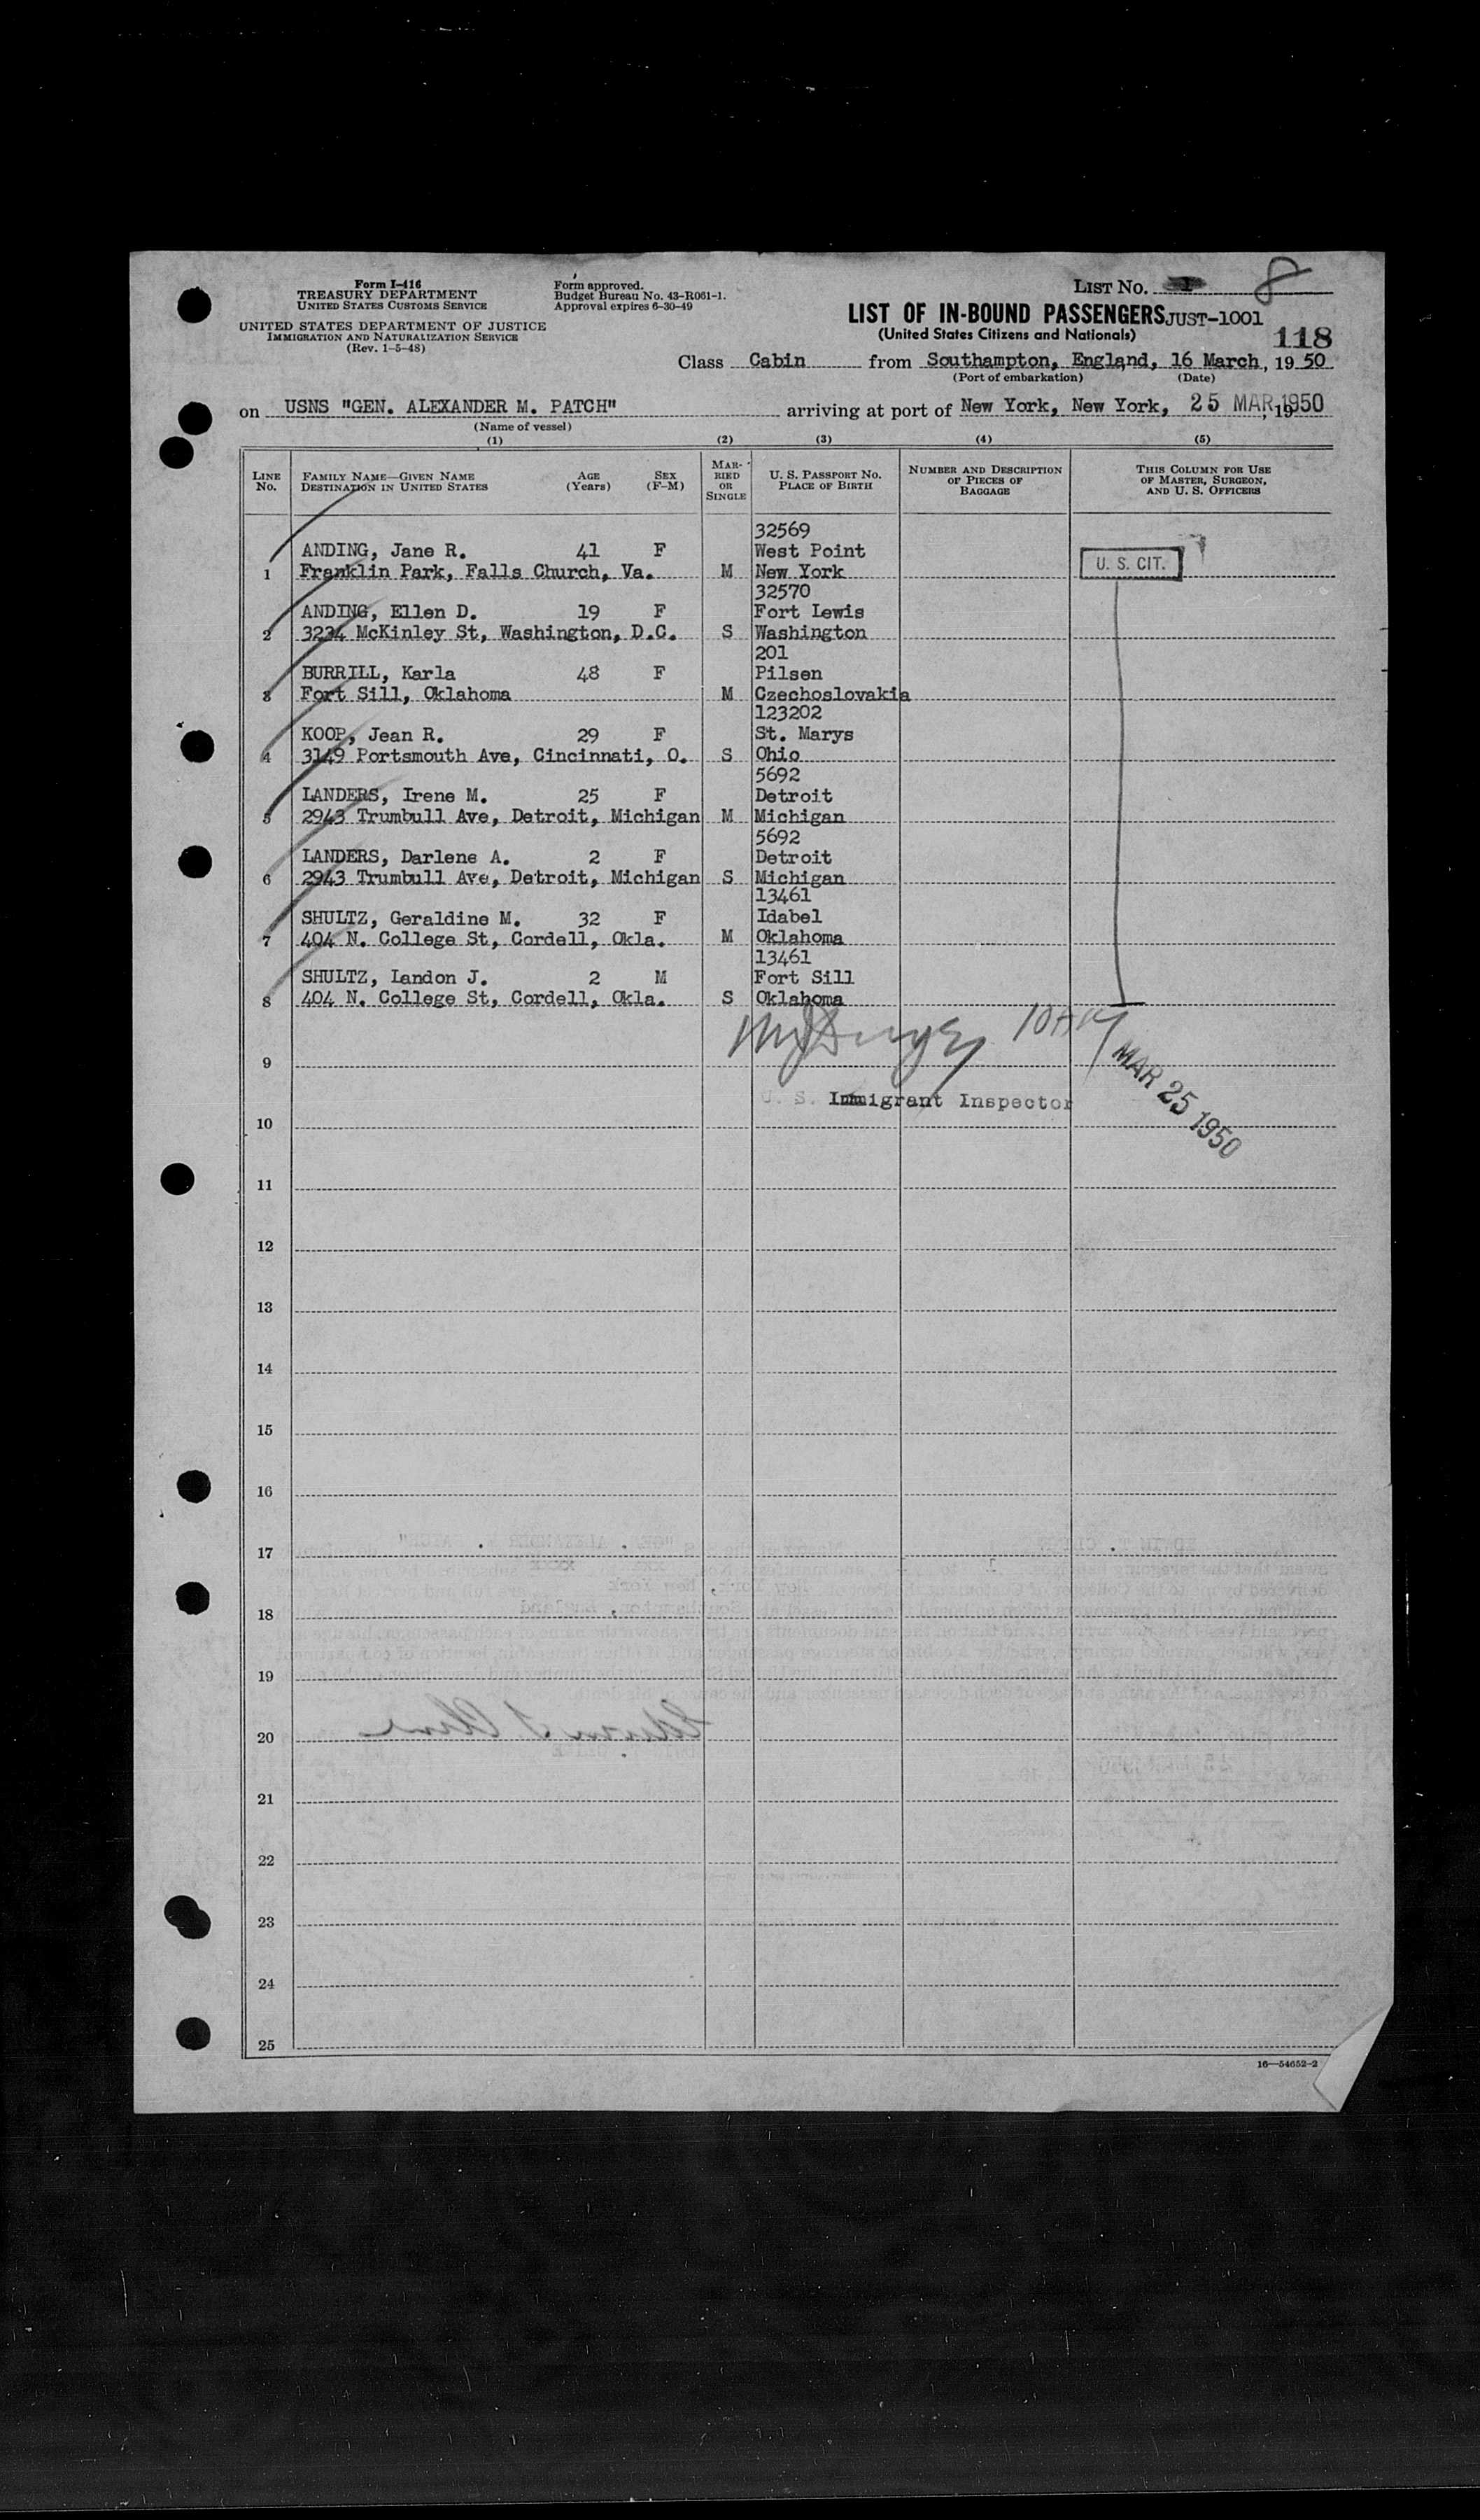 Form I-416
TREASURY DEPARTMENT
UNITED STATES CUSTOMS SERVICE
UNITED STATES DEPARTMENT OF JUSTICE
IMMIGRATION AND NATURALIZATION SERVICE
(Rev. 1-5-48)
Form approved.
Budget Bureau No. 43-R061-1.
Approval expires 6-30-49
LIST No. 8
LIST OF IN-BOUND PASSENGERS JUST-1001
(United States Citizens and Nationals)
118
Class Cabin from Southampton, England, 16 March, 1950
(Port of embarkation) (Date)
on USNS "GEN. ALEXANDER M. PATCH" arriving at port of New York, New York, 25 MAR 1950, 19
(Name of vessel)
(1) (2) (3) (4) (5)
LINE No.
FAMILY NAME—GIVEN NAME
DESTINATION IN UNITED STATES
AGE (Years)
SEX (F-M)
MARRIED OR SINGLE
U. S. PASSPORT NO.
PLACE OF BIRTH
NUMBER AND DESCRIPTION OF PIECES OF BAGGAGE
THIS COLUMN FOR USE OF MASTER, SURGEON, AND U. S. OFFICERS
32569
ANDING, Jane R. 41 F West Point
1 Franklin Park, Falls Church, Va. M New York U. S. CIT.
32570
ANDING, Ellen D. 19 F Fort Lewis
2 3224 McKinley St, Washington, D.C. S Washington
201
BURRILL, Karla 48 F Pilsen
3 Fort Sill, Oklahoma M Czechoslovakia
123202
KOOP, Jean R. 29 F St. Marys
4 3149 Portsmouth Ave, Cincinnati, O. S Ohio
5692
LANDERS, Irene M. 25 F Detroit
5 2943 Trumbull Ave, Detroit, Michigan M Michigan
5692
LANDERS, Darlene A. 2 F Detroit
6 2943 Trumbull Ave, Detroit, Michigan S Michigan
13461
SHULTZ, Geraldine M. 32 F Idabel
7 404 N. College St, Cordell, Okla. M Oklahoma
13461
SHULTZ, Landon J. 2 M Fort Sill
8 404 N. College St, Cordell, Okla. S Oklahoma
9
MAR 25 1950
U. S. Immigrant Inspector
10
11
12
13
14
15
16
17
18
19
20
21
22
23
24
25
16—54652-2